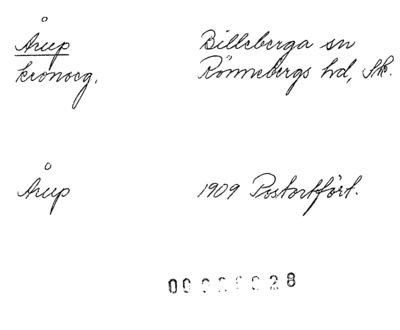 Årup Billeberga sn
kronoeg. Rönnebergs hd, Sk.
Årup 1909 Postortfört.